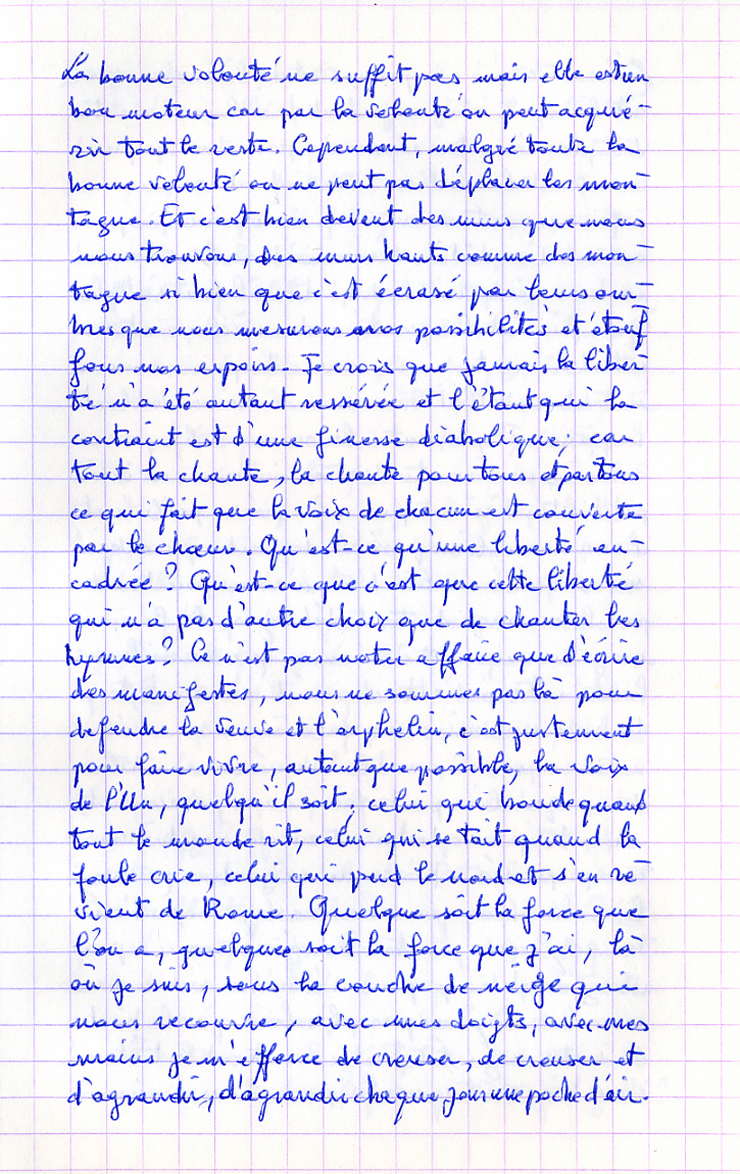 La bonne volonté ne suffit pas mais elle est un
bon moteur car par la volonté on peut acqué-
rir tout le reste. Cependant, malgré toute la
bonne volonté on ne peut pas déplacer les mon-
tagne. Et c'est bien devant des murs que nous
nous trouvons, des murs hauts comme des mon-
tagne si bien que c'est écrasé par leurs om-
bres que nous mesurons nos possibilités et étouf
fons nos espoirs. Je crois que jamais la liber-
té n'a été autant resserrée et l'étau qui la
contraint est d'une finesse diabolique; car
tout la chante, la chante pour tous et partous
ce qui fait que la voix de chacun est couverte
par le chœur. Qu'est-ce qu'une liberté en-
cadrée? Qu'est-ce que c'est que cette liberté
qui n'a pas d'autre choix que de chanter les
hymnes? Ce n'est pas noter affaire que d'écrire
des manifestes, nous ne sommes pas là pour
defendre la veuve et l'orphelin, c'est justement
pour faire vivre, autant que possible, la voix
de l'Un, quelqu'il soit; celui qui boude quand
tout le monde rit, celui qui se tait quand la
foule crie, celui qui perd le nord et s'en re-
vient de Rome. Quelque soit la force que
l'on a, quelques soit la force que j'ai, là
où je suis, sous la couche de neige qui
nous recouvre, avec mes doigts, avec mes
mains je m'efforce de creuser, de creuser et
d'agrandir, d'agrandir chaque jour une poche d'air.